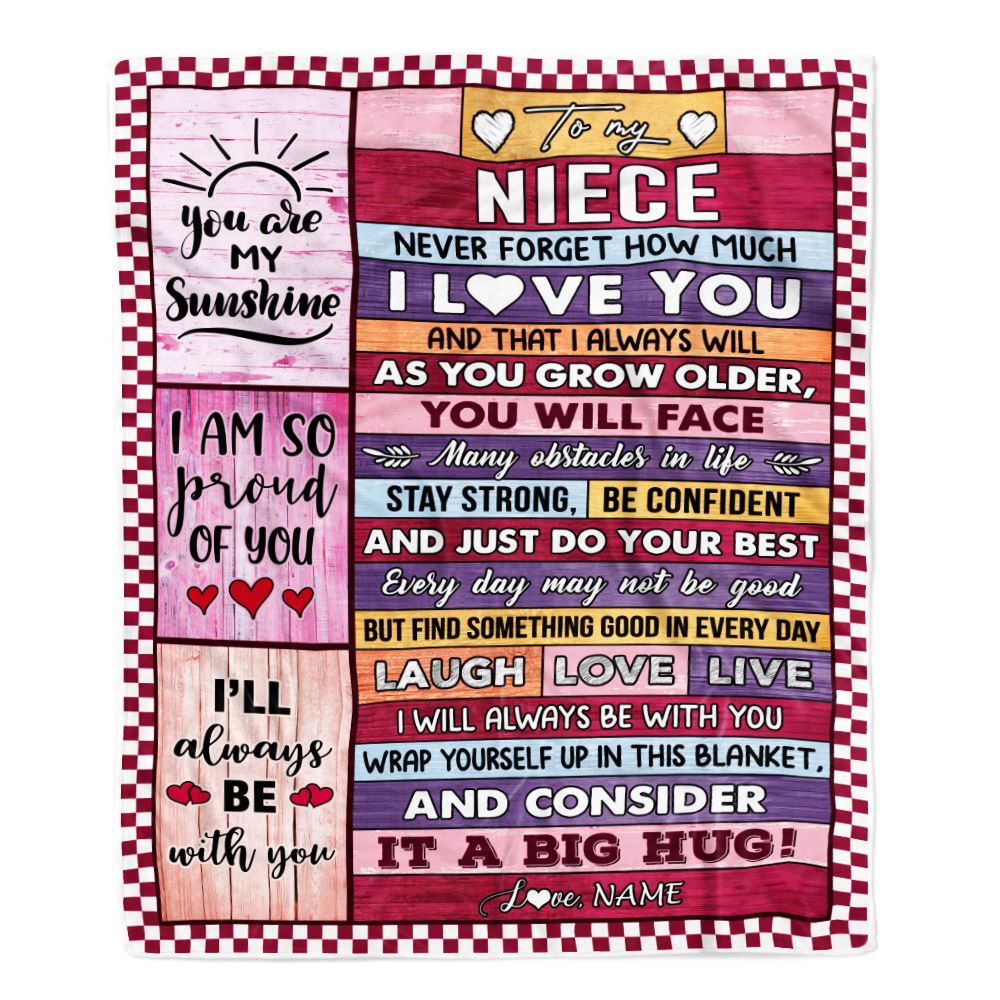 You are
MY
Sunshine
I AM SO
proud
OF YOU
I'LL
always
BE
with you
To my
NIECE
NEVER FORGET HOW MUCH
I LOVE YOU
AND THAT I ALWAYS WILL
AS YOU GROW OLDER,
YOU WILL FACE
Many obstacles in life
STAY STRONG, BE CONFIDENT
AND JUST DO YOUR BEST
Every day may not be good
BUT FIND SOMETHING GOOD IN EVERY DAY
LAUGH LOVE LIVE
I WILL ALWAYS BE WITH YOU
WRAP YOURSELF UP IN THIS BLANKET,
AND CONSIDER
IT A BIG HUG!
Love, NAME